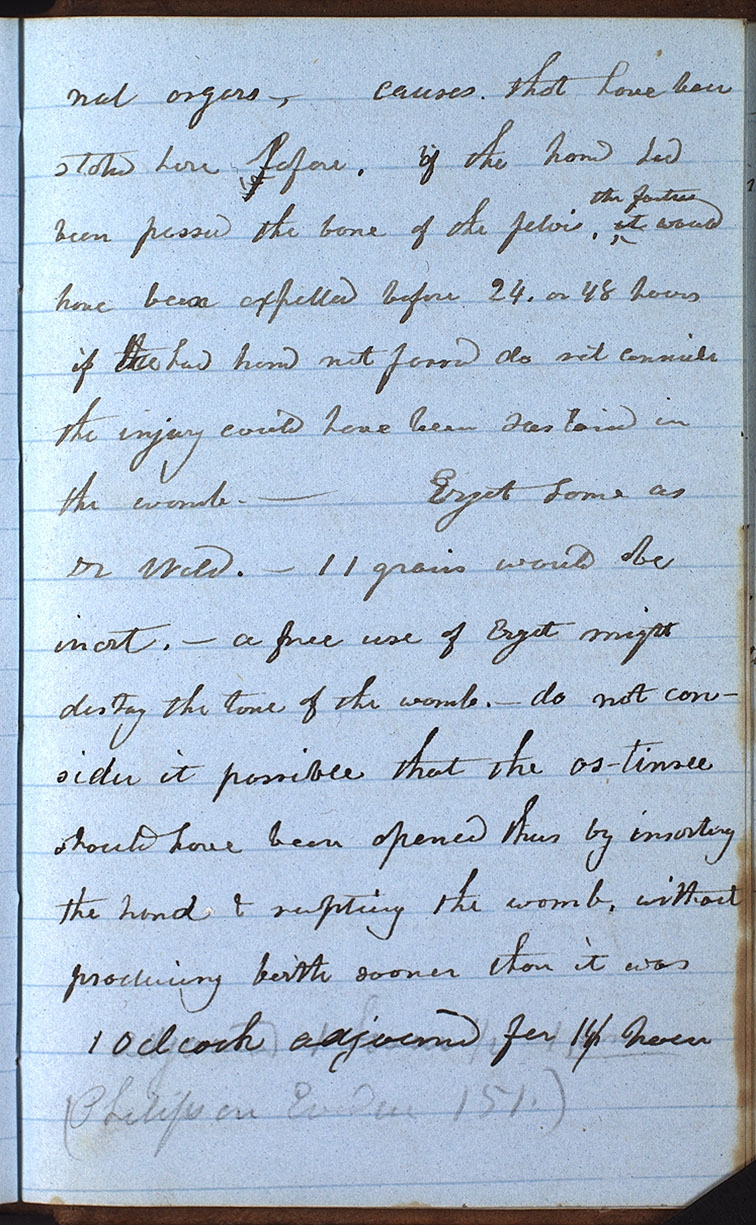 nal organs, causes. that have been
stated here before. if the hand had
been passed the bone of the pelvis, the foetus it would
have been expelled before 24. or 48 hours
if the had hand not passed do not consider
the injury could have been sustaind in
the womb. — Ergot same as
Dr Wild. — 11 grains would be
inert. — a free use of Ergot might
destroy the tone of the womb. — do not con-
sider it possible that the os-tincee
should have been opened thus by inserting
the hand & rupting the womb, without
producing birth sooner than it was
1 Oclock adjournd for 1/4 hour
(Philipson Eviden 151.)